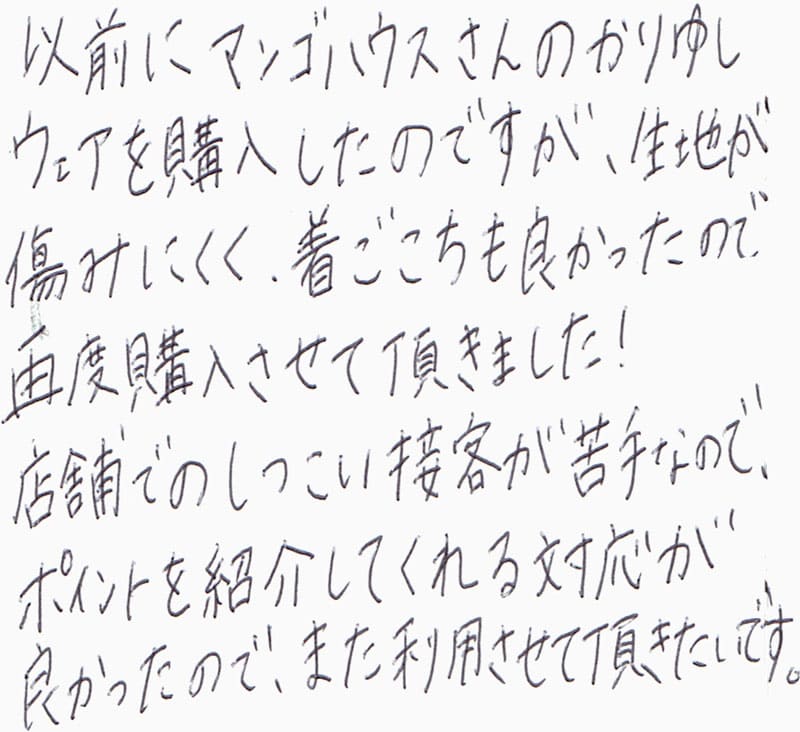 以前にマンゴハウスさんのかりゆし
ウェアを購入したのですが、生地が
傷みにくく、着ごこちも良かったので
再度購入させて頂きました!
店舗でのしつこい接客が苦手なので、
ポイントを紹介してくれる対応が
良かったので、また利用させて頂きたいです。